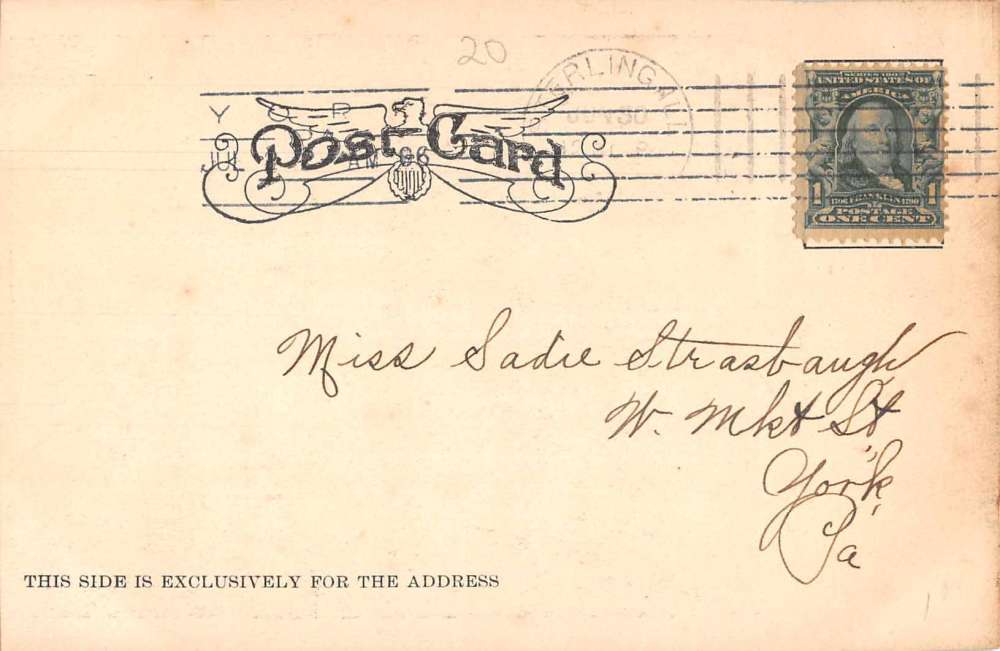 20
STERLING, ILL
JUN 30
YOR
JUL AM 06
Post Card
SERIES 1902
UNITED STATES OF
AMERICA
1 1
1706 FRANKLIN 1790
POSTAGE
ONE CENT
Miss Sadie Strasbaugh
W. Mkt St
York,
Pa
THIS SIDE IS EXCLUSIVELY FOR THE ADDRESS